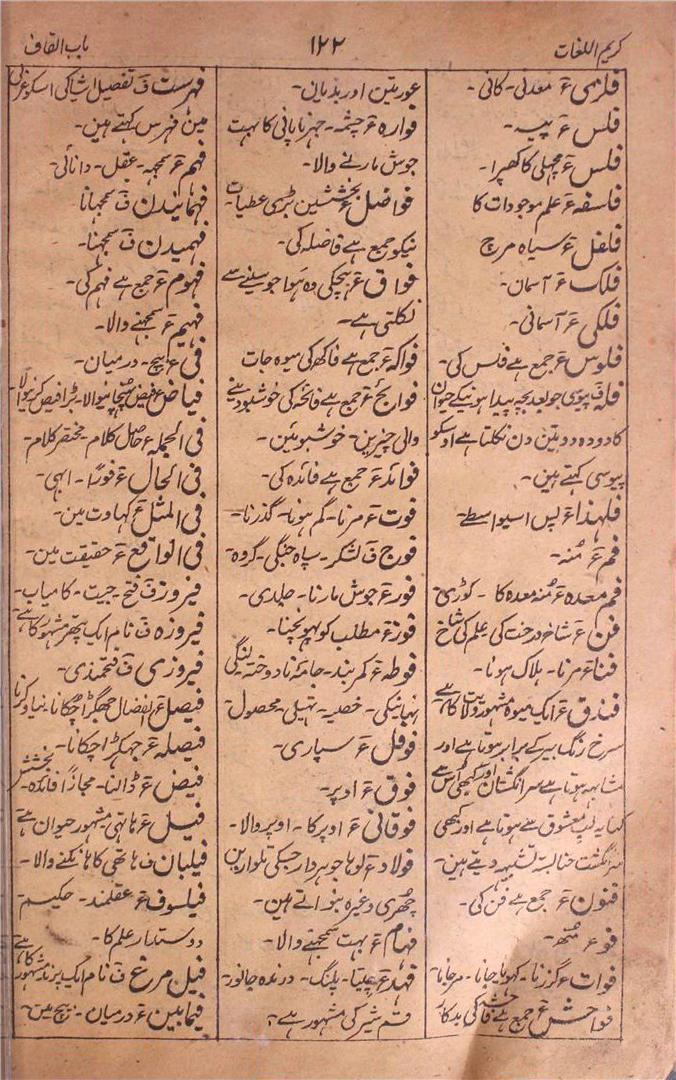 کریم اللغات
۱۲۲
باب القاف
فلزی ء معدنی۔ کانی۔
فلس ء پیسہ۔
فلس ء مچھلی کا کھپرا۔
فلسفہ ء علم موجودات کا
فلفل ء سیاہ مرچ
فلک ء آسمان۔
فلکی ء آسمانی۔
فلوس ء جمع ہے فلس کی۔
فلہ ف پیوسی جو بعد بچہ پیدا ہونیکے حیوان
کا دودہ دو تین دن نکلتا ہے اوسکو
پیوسی کہتے ہین۔
فلہذا ء پس اسیواسطے۔
فم ء مُنہ۔
فم معدہ ء مُنہ معدہ کا۔ کوڑی
فن ء شاخ درخت کی علم کی شاخ
فنا ء مرنا۔ ہلاک ہونا۔
فندق ء ایک میوہ مشہور ولایت کا ہے
سرخ رنگ بیر کے برابر ہوتا ہے اور
مشابہ ہوتا ہے سر انگشتان اور کبھی اس سے
کنایہ لب معشوق سے ہوتا ہے اور کبھی
سر انگشت حنا بستہ تشبیہ دیتے ہین۔
فنون ء جمع ہے فن کی۔
فو ء منھ۔
فوات ء گزرنا۔ کھویا جانا۔ مر جانا
فواحش ء جمع ہے فاحشہ کی بدکار
عورتین اور ہذیان۔
فوارہ ء چشمہ۔ جھرنا پانی کا بہت
جوش مارنے والا۔
فواضل ء بخششین بڑی عطیات
نیکو جمع ہے فاضلہ کی۔
فواق ء ہچکی وہ ہوا جو سینے سے
نکلتی ہے۔
فواکہ ء جمع ہے فاکھہ کی میوہ جات
فوایح ء جمع ہے فائحہ کی خوشبو دینے
والی چیزین۔ خوشبوئین۔
فوائد ء جمع ہے فائدہ کی۔
فوت ء مرنا۔ گم ہونا۔ گذرنا۔
فوج ف لشکر۔ سپاہ جنگی۔ گروہ۔
فور ء جوش مارنا۔ جلدی۔
فوز ء مطلب کو پہونچنا۔
فوطہ ء کمر بند۔ جامہ نا دوختہ لنگی
نہانیکی۔ خصیہ۔ تھیلی۔ محصول
فوفل ء سپاری۔
فوق ء اوپر۔
فوقانی ء اوپر کا۔ اوپر والا۔
فولاد ء لوہا جوہر دار جسکی تلوارین
چھری وغیرہ بنواتے ہین۔
فہام ء بہت سمجھنے والا۔
فہد ء چیتا۔ پلنگ۔ درندہ جانور۔
قسم شیر کی مشہور ہے۔
فہرست ف تفصیل اشیا کی اسکو عربی
مین فہرس کہتے ہین۔
فہم ء سمجہہ۔ عقل۔ دانائی۔
فہمانیدن ف سمجہانا
فہمیدن ف سمجہنا۔
فہوم ء جمع ہے فہم کی۔
فہیم ء سمجہنے والا۔
فی ء بیچ۔ درمیان۔
فیاض ء فیض پہنچانیوالا۔ بڑا فیض کرنیوالا۔
فی الجملہ ء حاصل کلام۔ مختصر کلام۔
فی الحال ء فوراً۔ ابہی۔
فی المثل ء کہاوت مین۔
فی الواقع ء حقیقت مین۔
فیروز ف فتح۔ جیت۔ کامیاب۔
فیروزہ ف نام ایک پتھر مشہور کا ہے
فیروزی ف فتحمندی۔
فیصل ء انفصال جھگڑا چکانا۔ بنیاد کرنا
فیصلہ ء جہگڑا چکانا۔
فیض ء ڈالنا۔ مجازاً فائدہ۔ بخشش
فیل ء ہاتھی مشہور حیوان ہے
فیلبان ف ہاتھی کا ہانکنے والا۔
فیلسوف ء عقلمند۔ حکیم۔
دوستدار علم کا۔
فیل مرغ ف نام ایک پرند مشہور کا ہے
فیمابین ء درمیان۔ بیچ مین۔